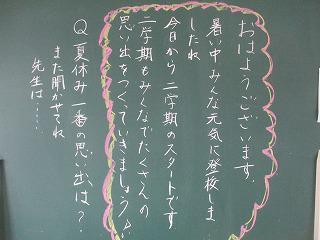 おはようございます
暑い中みんな元気に登校しま
したね
今日から二学期のスタートです
二学期もみんなでたくさんの
思い出をつくっていきましょう♪
Q 夏休み一番の思い出は?
また聞かせてね
先生は……